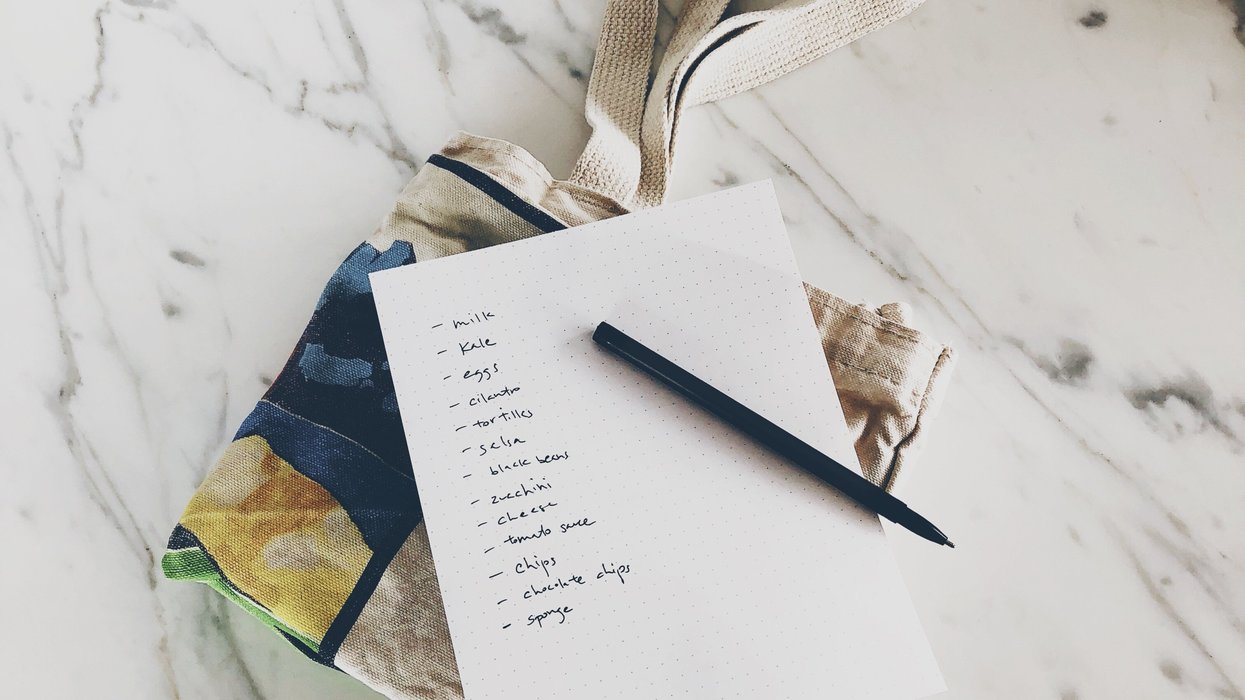 - milk
- Kale
- eggs
- cilantro
- tortillas
- salsa
- black beans
- zucchini
- cheese
- tomato sauce
- chips
- chocolate chips
- sponge